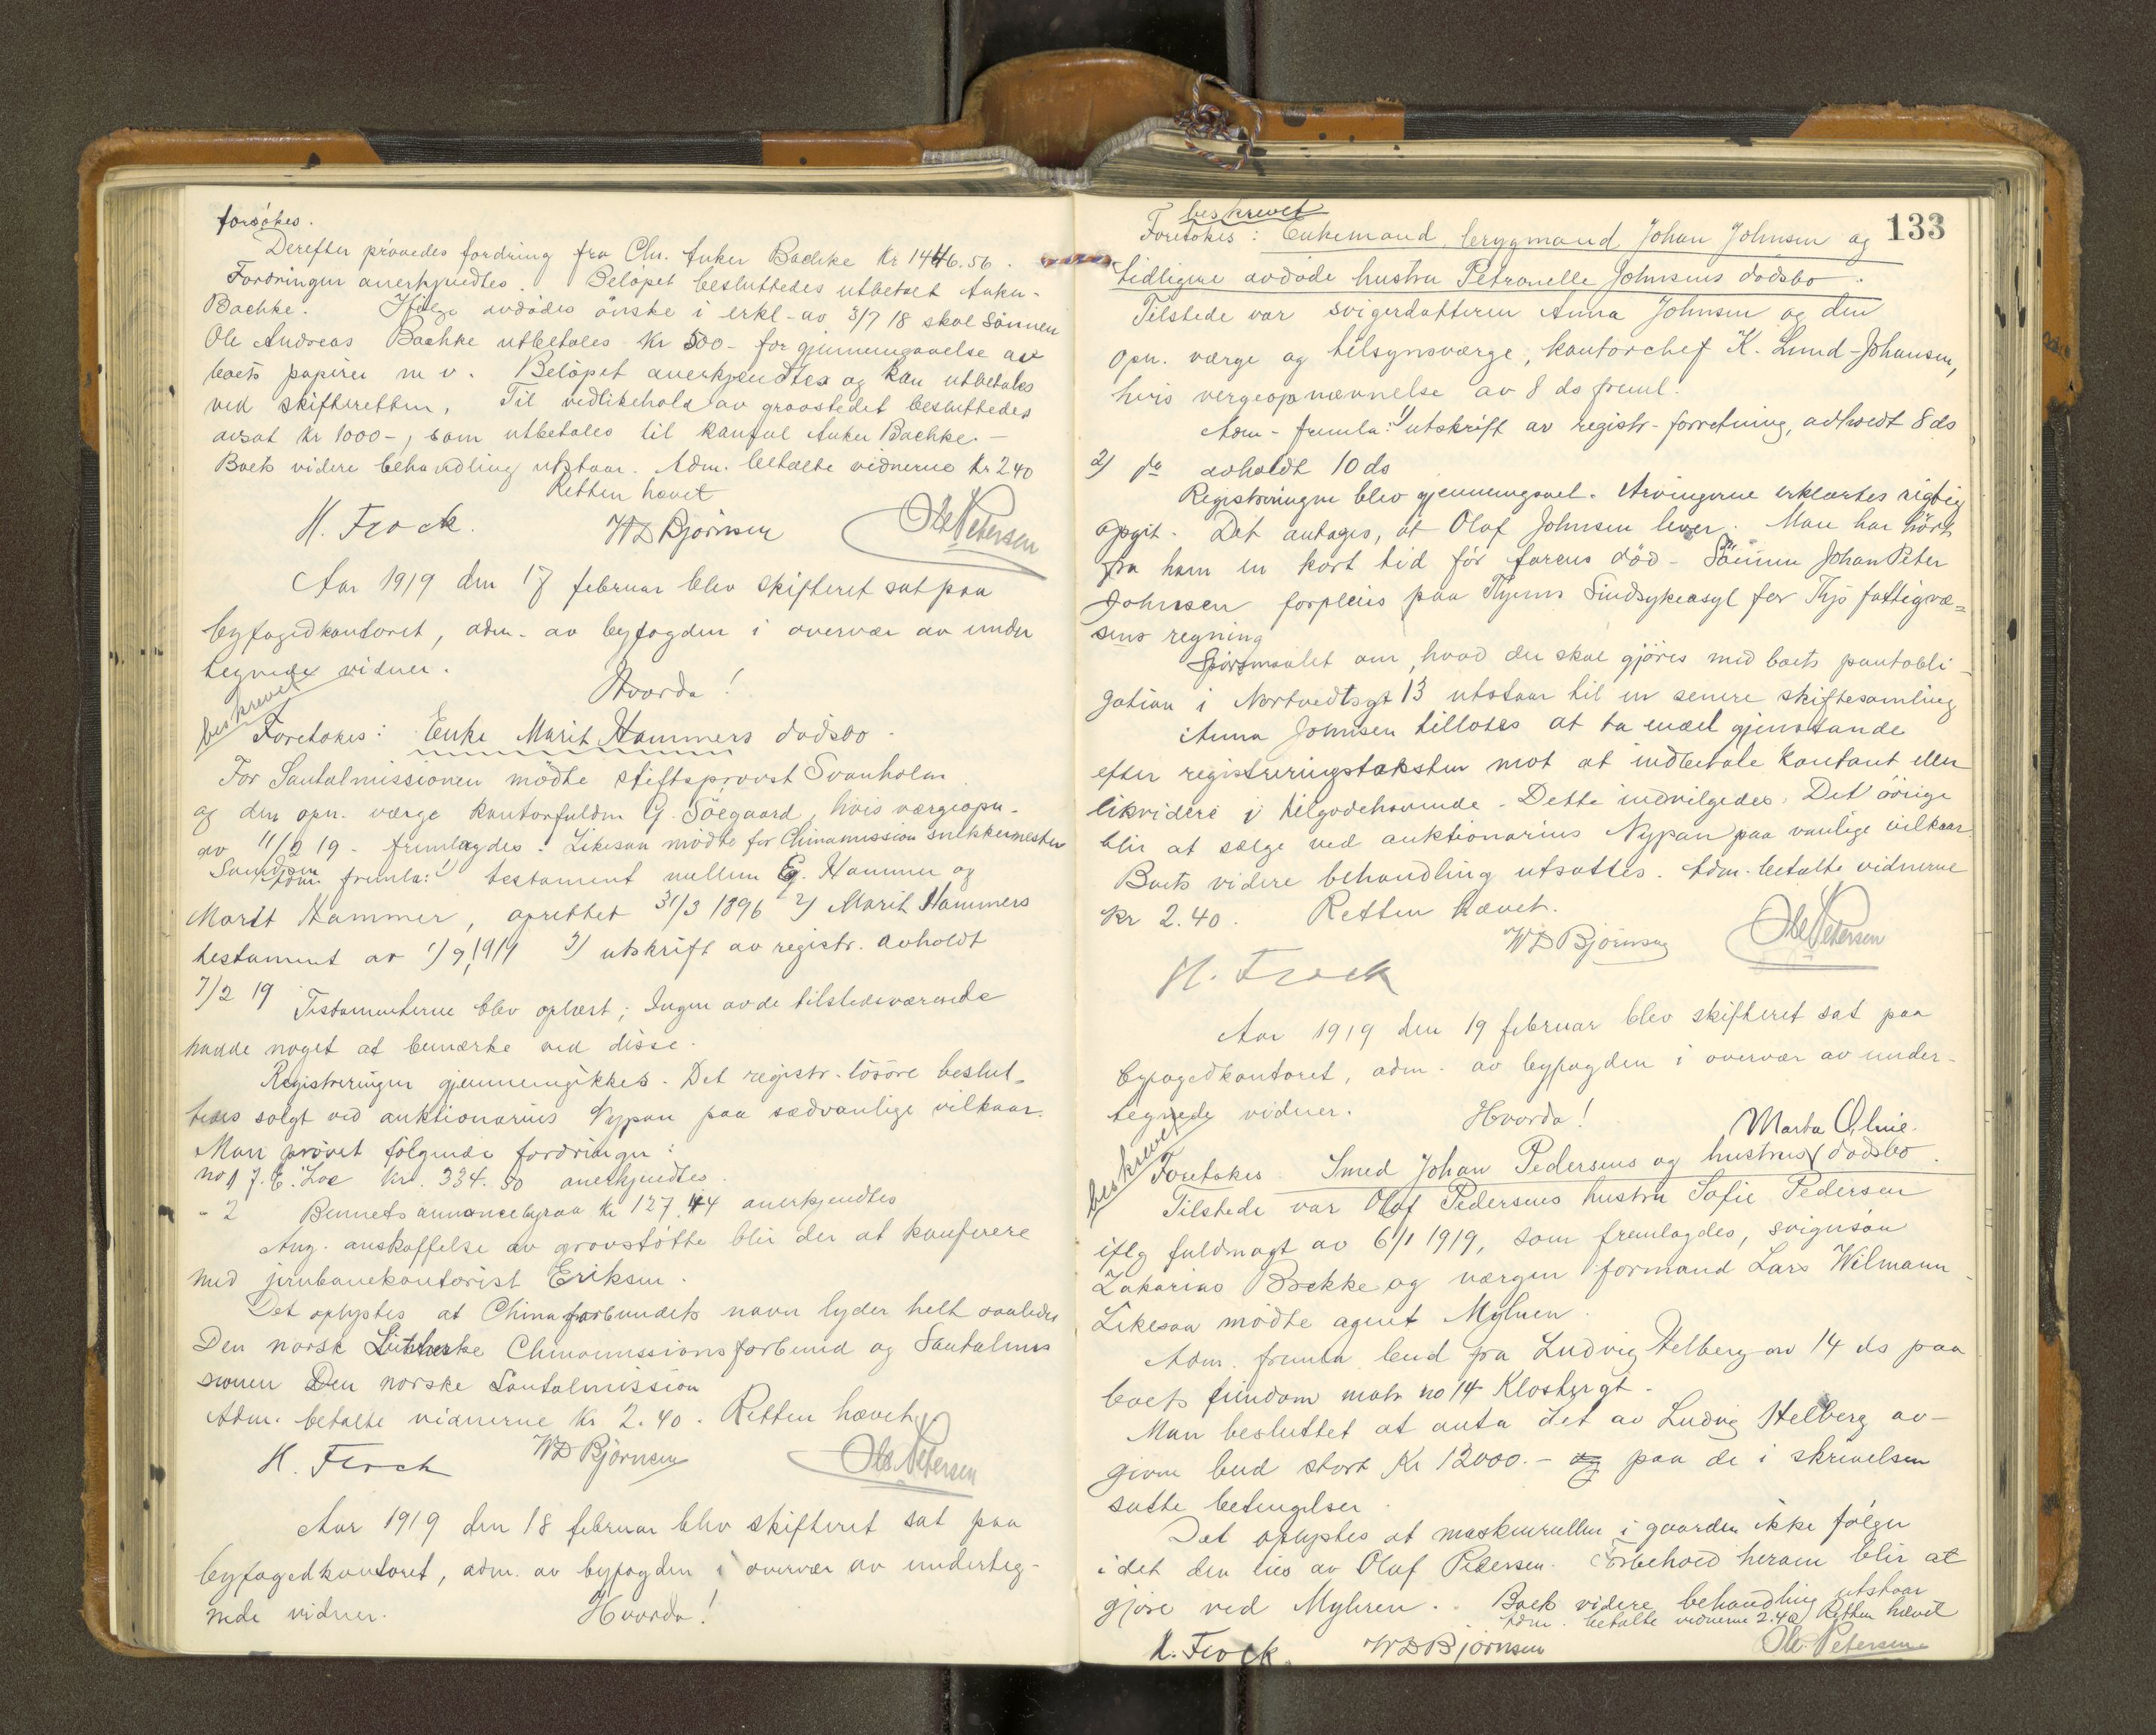 forsøkes.
Derefter prøvedes fordring fra Chr. Anker Bachke Kr 1446.56.
Fordringen anerkjendtes. Beløpet besluttedes utbetalt Anker-
Bachke. Ifølge avdødes ønske i erkl- av 3/7 18 skal Sønnen
Ole Andreas Bachke utbetales kr 500- for gjennemgaaelse av
boets papirer m v. Beløpet anerkjendtes og kan utbetales
ved skifteretten. Til vedlikehold av gravstedet besluttedes
avsat kr 1000-, som utbetales til Anker Bachke.-
Boets videre behandling utstaar. Adm. betalte vidnerne kr 2.40
Retten hævet
H. Frock. WD Bjørnsen Ole Petersen
Aar 1919 den 17 februar blev skifteret sat paa
byfogedkontoret, adm. av byfogden i overvær av under
tegnede vidner.
Hvorda!
beskrevet
Foretokes: Enke Marit Hammers dødsbo.
For Santalmissionen mødte stiftsprovst Svanholm
og den opn. værge kontorfuldm G. Söegaard, hvis værgeopn-
av 11/2 19 - fremlagdes. Likesaa mødte for Chinamission snekkermester
Adm. fremla: 1) testament mellem E. Hammer og
Marit Hammer, oprettet 31/3 1896 2) Marit Hammers
testament av 1/9 1911 3) utskrift av registr. avholdt
7/2 19 Testamenterne blev oplæst; Ingen av de tilstedeværende
hadde noget at bemærke ved disse.
Registreringen gjennemgikkes. Det registr. løsøre beslut-
tedes solgt ved auktionarius Nypan paa sædvanlige vilkaar.
Man prøvet følgende fordringer:
no 1 J. E. Loe Kr. 334.50 anerkjendtes.
- 2 Bennets annoncebyraa Kr 127.44 anerkjendtes
Ang. anskaffelse av gravstøtte blir der at konferere
med jernbanekontorist Eriksen.
Det oplystes at Chinaforbundets navn lyder helt saaledes
Den norsk Lutherske Chinamissionsforbund og Santalmis
sionen Den norske Santalmission
Adm. betalte vidnerne Kr 2.40. Retten hævet
H. Frock WD Bjørnsen Ole Petersen
Aar 1919 den 18 februar blev skifteret sat paa
byfogedkontoret, adm. av byfogden i overvær av underteg-
nede vidner. Hvorda!
133
beskrevet
Foretokes: Enkemand, brygmand Johan Johnsen og
tidligere avdøde hustru Petronelle Johnsens dødsbo.
Tilstede var svigerdatteren Anna Johnsen og den
opn. værge og tilsynsværge, kontorchef K. Lund-Johansen,
hvis vergeopnævnelse av 8 ds freml.
Adm- fremla: 1) utskrift av registr-forretning, avholdt 8 ds
2) do avholdt 10 ds
Registreringen blev gjennemgaaet. Arvingerne erklærtes rigtig
opgit. Det antages, at Olaf Johnsen lever. Man har hört
fra ham en kort tid før farens död - Sønnen Johan Peter
Johnsen forpleies paa Sindsykeasyl for fattigvæ-
sens regning
Spørsmaalet om, hvad der skal gjöres med boets pantobli-
gation i Nortvedtsgt 13 utstaar til en senere skiftesamling
Anna Johnsen tillotes at ta endel gjenstande
efter registreringstaksten mot at indbetale kontant eller
likvidere i tilgodehavende. Dette indvilgedes. Det övrige
blir at sælge ved auktionarius Nypan paa vanlige vilkaar
Boets videre behandling utsattes. Adm. betalte vidnerne
Kr 2.40. Retten hævet.
H. Frock WD Bjørnsen Ole Petersen
Aar 1919 den 19 februar blev skifteret sat paa
byfogedkontoret, adm. av byfogden i overvær av under-
tegnede vidner. Hvorda!
beskrevet
Marta Oline
Foretokes Smed Johan Pedersens og hustrus dødsbo.
Tilstede var Olaf Pedersens hustru Sofie Pedersen
iflg fuldmagt av 6/1 1919, som fremlagdes, svigersøn
Zakarias Brekke og værgen formand Lars Wilmann.
Likesaa mødte agent Myhren.
Adm. fremla bud fra Ludvig Helberg av 14 ds paa
boets eiendom matr no 14 Klostergt.
Man besluttet at anta det av Ludvig Helberg av-
givne bud stort Kr 12000.- og paa de i skrivelsen
satte betingelser.
Det oplystes at maskinrullen i gaarden ikke følger
idet den eies av Olaf Pedersen. Forbehold herom blir at
gjøre ved Myhren. Boets videre behandling utstaar
Adm. betalte vidnerne 2.40 Retten hævet
H. Frock. WD Bjørnsen Ole Petersen